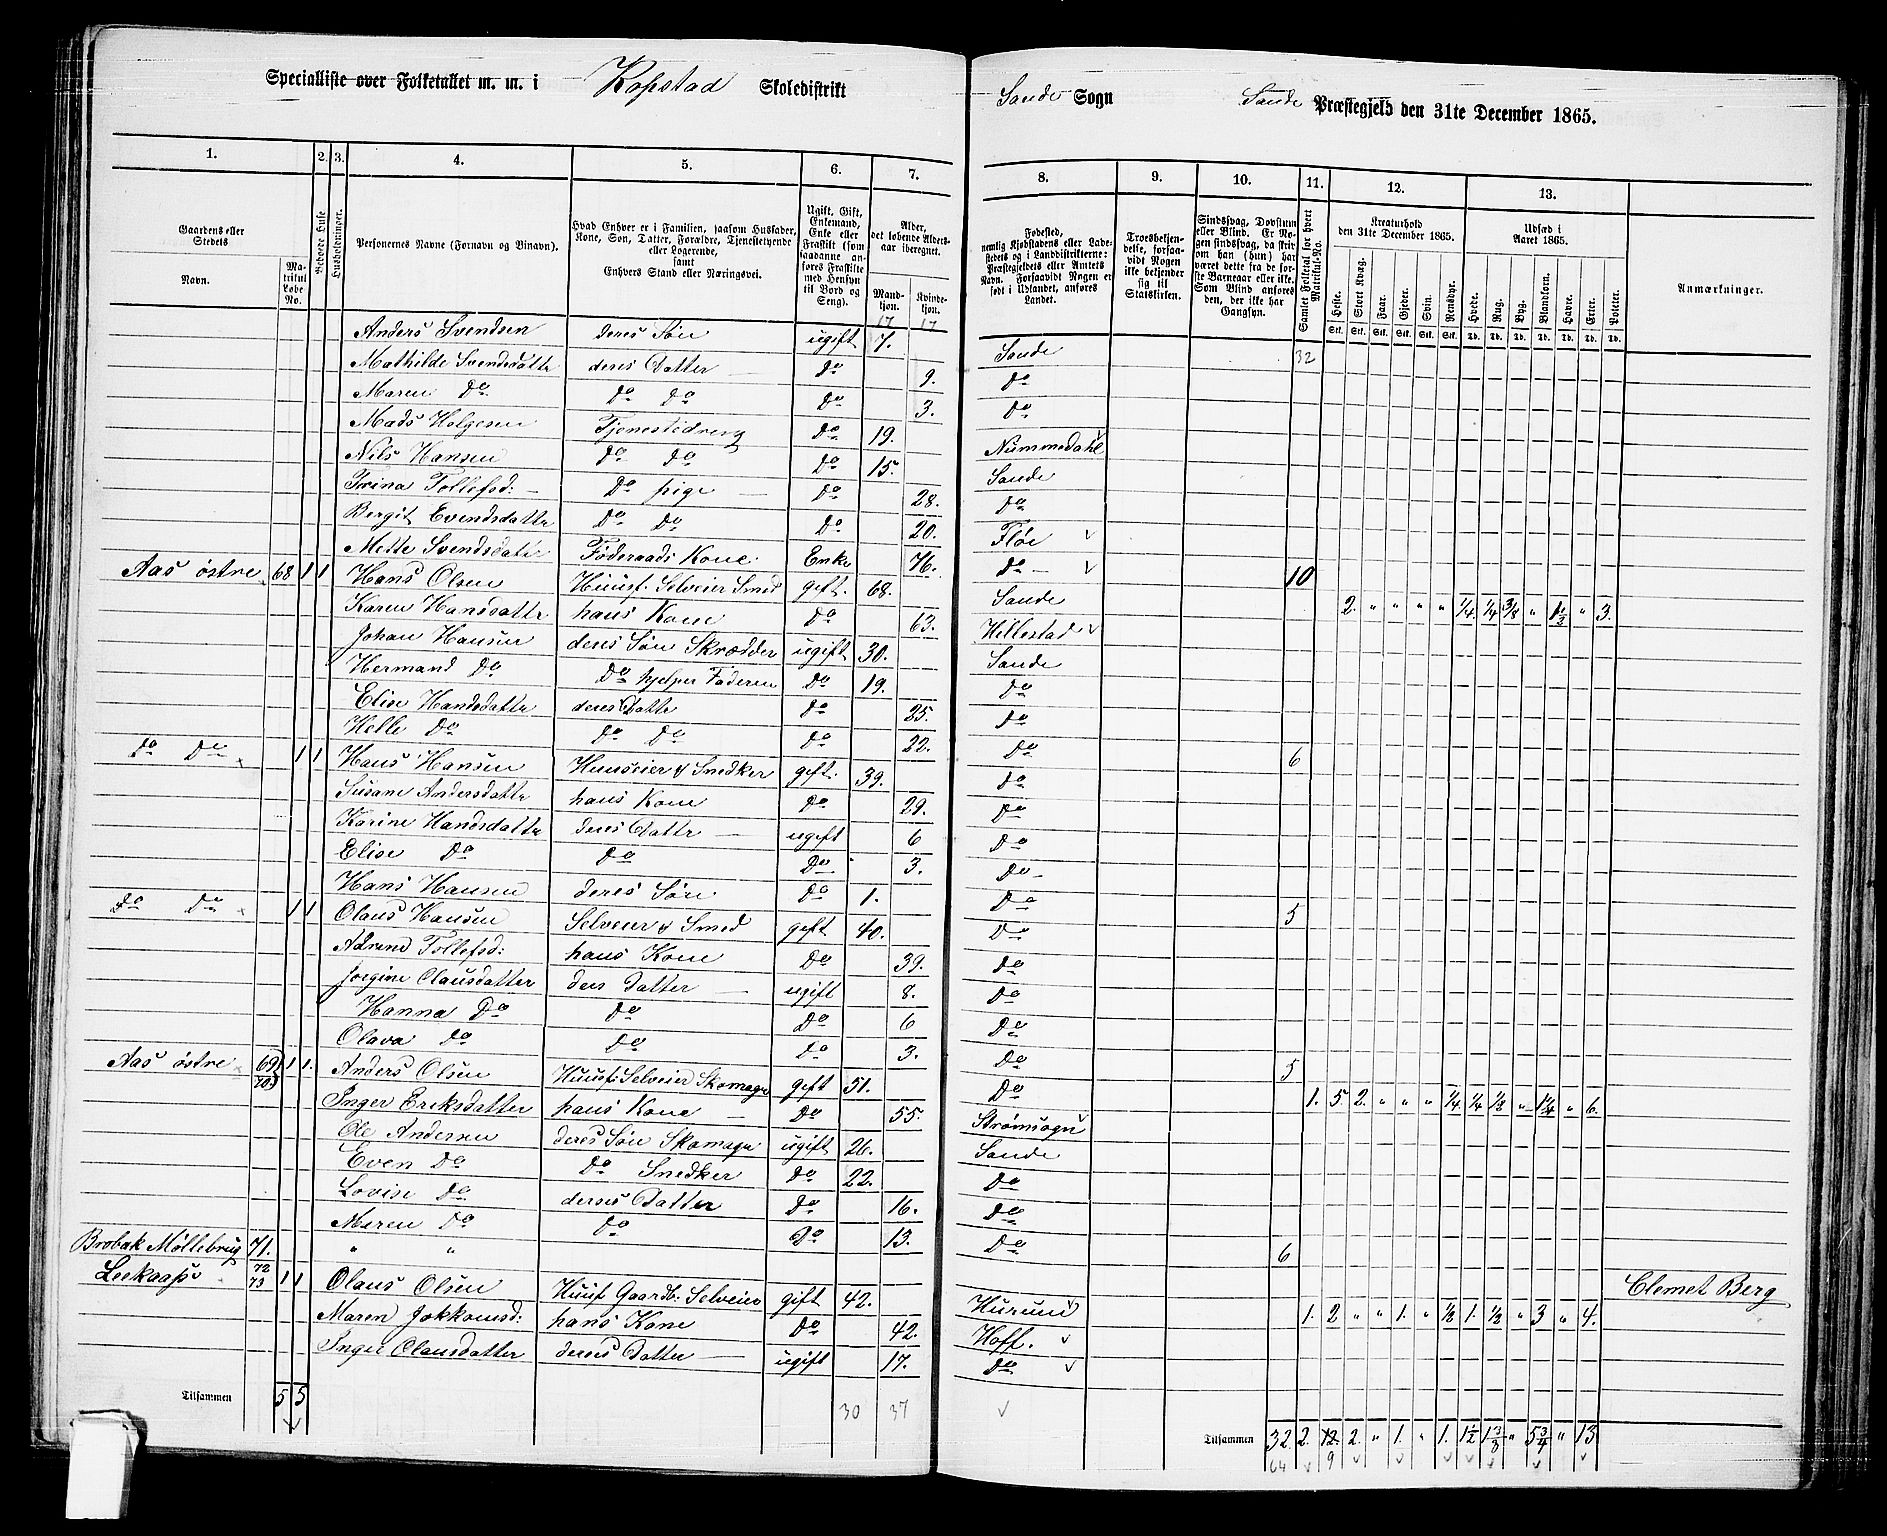 Specialliste over Folketallet m. m. i Kopstad Skoledistrikt Sande Sogn Sande Præstegjeld den 31te December 1865.
1. 2. 3. 4. 5. 6. 7. 8. 9. 10. 11. 12. 13.
Gaardens eller Stedets Navn. Matrikul Løbe No.
Beboede Huse
Husholdninger.
Personernes Navne (Fornavn og Tilnavn).
Hvad Enhver er i Familien, saasom Husfader, Kone, Søn, Datter, Forældre, Tjenestetyende eller Logerende, samt Enhvers Stand eller Næringsvei.
Ugift, Gift, Enkemand, Enke eller Fraskilt (som saadanne anføres Fraskilte med Hensyn til Bord og Seng).
Alder, det løbende Aldersaar iberegnet. Mandkjøn. Kvindekjøn.
Fødested, nemlig Kjøbstadens eller Ladestedets eller i Landdistrikterne: Præstegjeldets eller Amtets Navn. Forsaavidt Nogen er født i Udlandet, anføres Landet.
Troesbekjendelse, forsaavidt Nogen ikke bekjender sig til Statskirken.
Sindssvag, Døvstum eller Blind. Er Nogen sindssvag, da skrives om han (hun) har været dette fra de første Barneaar eller ikke. Som Blind anføres den, der ikke har Gangsyn.
Samlet Folketal for hvert Matrikul-No.
Kreaturhold den 31te December 1865. Heste. Stort Kvæg. Faar. Gjeder. Svin. Rensdyr.
Udsæd i Aaret 1865. Hvede. Rug. Byg. Blandkorn. Havre. Erter. Poteter.
Anmærkninger.
17 17
Anders Svendsen deres Søn ugift 7. Sande 32
Mathilde Svendsdatter deres Datter Do 9. Do
Maren Do Do Do Do 3. Do
Mads Helgesen Tjenestedreng Do 19. Nummedahl
Nils Hansen Do Do Do 15. Sande
Trina Tollefsd: Do pige Do 28. Do
Bergit Evendsdatter Do Do Do 20. Fløe
Mette Svendsdatter Føderaads Kone Enke 76. Do 10
Aas østre 68 1 1 Hans Olsen Huusf: Selveier Smed gift. 68. Sande 2. " " " " 1/4 1/4 3/8 " 1 1/3 " 3.
Karen Hansdatter hans Kone Do 63. Hillestad
Johan Hansen deres Søn Skrædder ugift 30. Sande
Hermand Do Do hjelper Faderen Do 19. Do
Elise Handsdatter deres Datter Do 25. Do
Helle Do Do Do Do 22. Do 6
Do Do 1 1 Hans Hansen Huuseier & Snedker gift. 39. Do
Susane Andersdatter hans Kone Do 29. Do
Karine Handsdatter deres Datter ugift 6 Do
Elise Do Do Do 3. Do
Hans Hansen deres Søn Do 1. Do 5
Do Do 1 1 Olaus Hansen Selveier & Smed gift 40. Do
Adrine Tollefsd: hans Kone Do 39. Do
Jorgine Olausdatter deres Datter ugift 8. Do
Hanna Do Do Do 6 Do
Olava Do Do Do 3. Do 5
Aas østre 69 70 1 1. Anders Olsen Huusf: Selveier Skomager gift 51. Do 1. 5. 2. " " " 1/4 1/4 1/8 " 1 1/4 " 6.
Inger Eriksdatter hans Kone Do 55. Strømsogn
Ole Andersen deres Søn Skomager ugift 26. Sande
Even Do Do Snedker Do 22. Do
Lovise Do deres Datter Do 16. Do
Maren Do Do Do 13. Do 6
Brobak Møllebrug 71. " "
72 73 1 1 Olaus Olsen Huusf Gaardb: Selveier gift 42. Hurum 1. 2 " " 1. " 1/2 1. 1/2 " 3 " 4. Clemet Berg
Maren Jokkomsd: hans Kone Do 42. Hoff.
Inger Olausdatter deres Datter ugift 17. Do
Tilsammen 5 5 30 37
Tilsammen 32. 2. 12. 2. " 1. " 1. 1 1/2 1 3/8 " 5 3/4 " 13
64 9